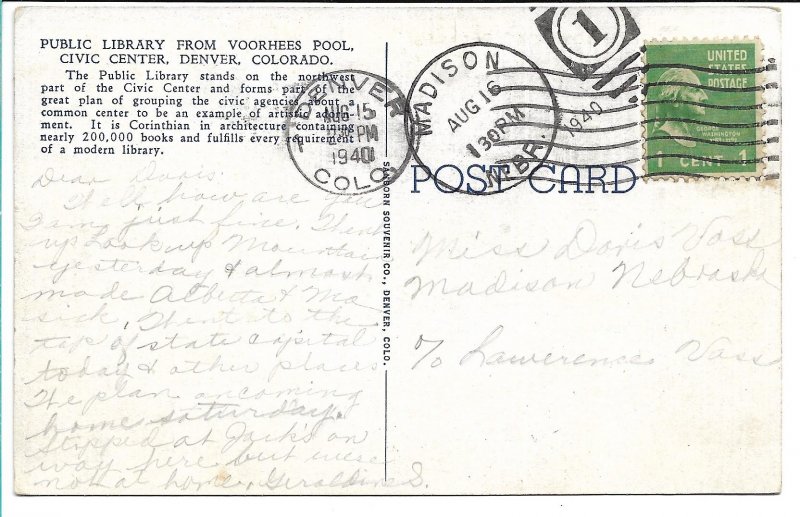 PUBLIC LIBRARY FROM VOORHEES POOL,
CIVIC CENTER, DENVER, COLORADO.
The Public Library stands on the northwest
part of the Civic Center and forms part of the
great plan of grouping the civic agencies about a
common center to be an example of artistic adorn-
ment. It is Corinthian in architecture containing
nearly 200,000 books and fulfills every requirement
of a modern library.
DENVER
AUG 15
PM
1940
COLO.
MADISON
AUG 16
130 PM
NEBR.
1940
1
UNITED
STATES
POSTAGE
GEORGE
WASHINGTON
1 CENT
POST CARD
SANBORN SOUVENIR CO., DENVER, COLO.
Dear Doris:
Well how are you
I am just fine. Went
up Lookup Mountain
yesterday & almost
made Alberta & Ma
sick. Went to the
top of state capital
today & other places
We plan on coming
home saturday.
Stopped at Jack's on
way here but were
not at home. Geraldine S.
Miss Doris Vass
Madison Nebraska
c/o Lawerence Vass